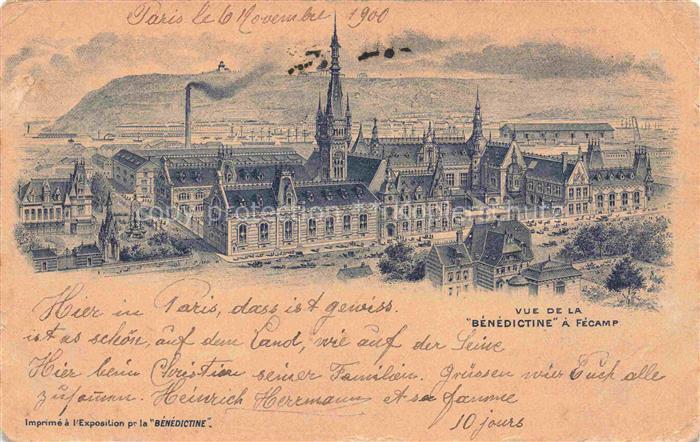 Paris le 6 Novembre 1900
VUE DE LA
"BÉNÉDICTINE" À FÉCAMP
Hier in Paris, dass ist gewiss.
ist es schön, auf dem Land, wie auf der Seine
Hier beim Christian seiner Familien. Grüssen wier Euch alle
zusammen. Heinrich Herrmann et sa famme
10 jours
Imprimé à l'Exposition pr la "BÉNÉDICTINE".